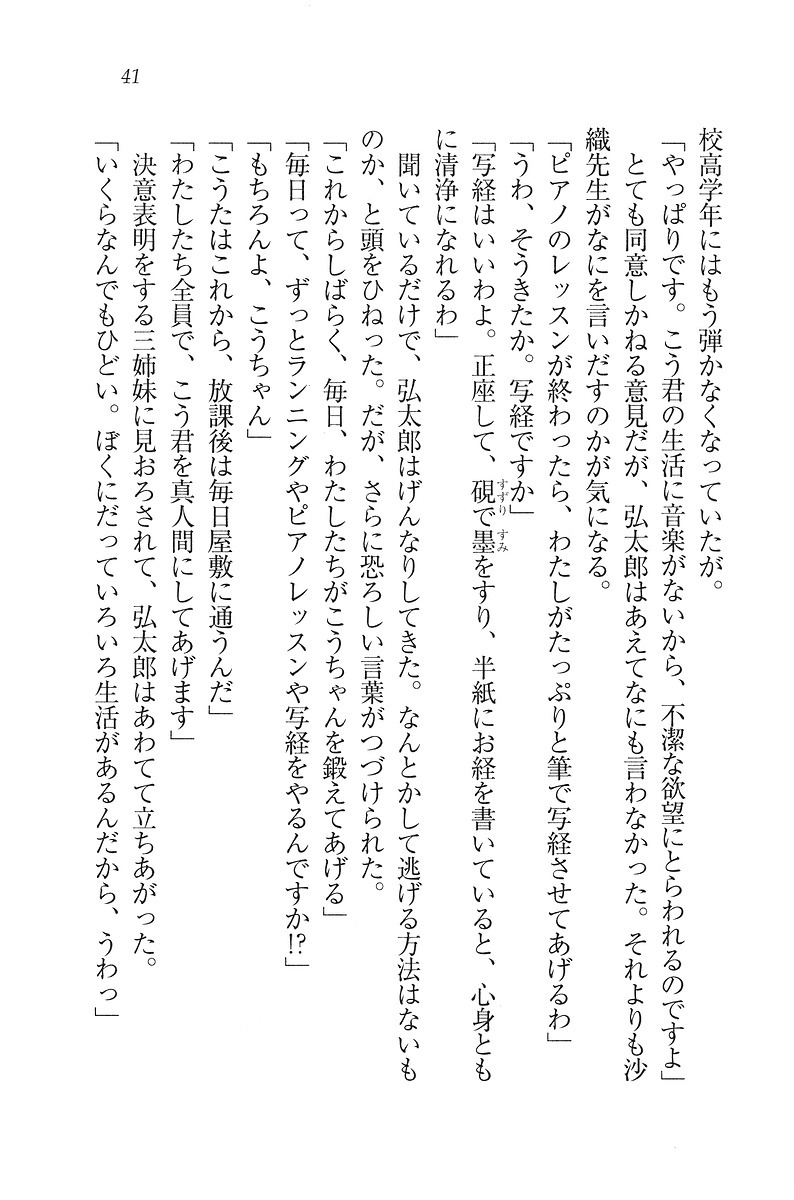 41
校高学年にはもう弾かなくなっていたが。
「やっぱりです。こう君の生活に音楽がないから、不潔な欲望にとらわれるのですよ」
とても同意しかねる意見だが、弘太郎はあえてなにも言わなかった。それよりも沙
織先生がなにを言いだすのかが気になる。
「ピアノのレッスンが終わったら、わたしがたっぷりと筆で写経させてあげるわ」
「うわ、そうきたか。写経ですか」
「写経はいいわよ。正座して、硯すずりで墨すみをすり、半紙にお経を書いていると、心身とも
に清浄になれるわ」
聞いているだけで、弘太郎はげんなりしてきた。なんとかして逃げる方法はないも
のか、と頭をひねった。だが、さらに恐ろしい言葉がつづけられた。
「これからしばらく、毎日、わたしたちがこうちゃんを鍛えてあげる」
「毎日って、ずっとランニングやピアノレッスンや写経をやるんですか!?」
「もちろんよ、こうちゃん」
「こうたはこれから、放課後は毎日屋敷に通うんだ」
「わたしたち全員で、こう君を真人間にしてあげます」
決意表明をする三姉妹に見おろされて、弘太郎はあわてて立ちあがった。
「いくらなんでもひどい。ぼくにだっていろいろ生活があるんだから、うわっ」